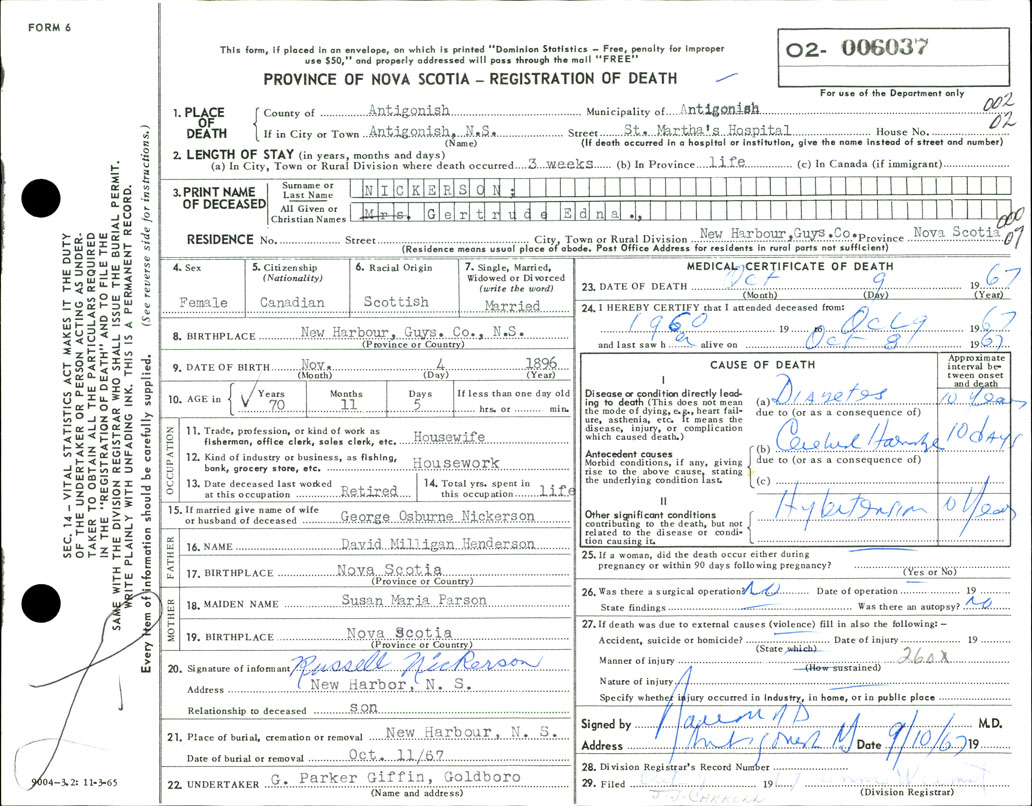 FORM 6
This form, if placed in an envelope, on which is printed "Dominion Statistics – Free, penalty for improper
use $50," and properly addressed will pass through the mail "FREE"
PROVINCE OF NOVA SCOTIA – REGISTRATION OF DEATH
O2- 006037
For use of the Department only
002
02
1. PLACE OF DEATH
County of Antigonish Municipality of Antigonish
If in City or Town Antigonish, N.S. Street St. Martha's Hospital House No.
(Name) (If death occurred in a hospital or institution, give the name instead of street and number)
2. LENGTH OF STAY (in years, months and days)
(a) In City, Town or Rural Division where death occurred 3 weeks (b) In Province life (c) In Canada (if immigrant)
3. PRINT NAME OF DECEASED
Surname or Last Name NICKERSON;
All Given or Christian Names Mrs. Gertrude Edna.,
000
07
RESIDENCE No. Street City, Town or Rural Division New Harbour,Guys.Co. Province Nova Scotia
(Residence means usual place of abode. Post Office Address for residents in rural parts not sufficient)
4. Sex
Female
5. Citizenship
(Nationality)
Canadian
6. Racial Origin
Scottish
7. Single, Married,
Widowed or Divorced
(write the word)
Married
8. BIRTHPLACE New Harbour, Guys. Co., N.S.
(Province or Country)
9. DATE OF BIRTH Nov. 4 1896
(Month) (Day) (Year)
10. AGE in Years Months Days If less than one day old
70 11 5 hrs. or min.
OCCUPATION
11. Trade, profession, or kind of work as
fisherman, office clerk, sales clerk, etc. Housewife
12. Kind of industry or business, as fishing,
bank, grocery store, etc. Housework
13. Date deceased last worked
at this occupation Retired
14. Total yrs. spent in
this occupation life
15. If married give name of wife
or husband of deceased George Osburne Nickerson
FATHER
16. NAME David Milligan Henderson
17. BIRTHPLACE Nova Scotia
(Province or Country)
MOTHER
18. MAIDEN NAME Susan Maria Parson
19. BIRTHPLACE Nova Scotia
(Province or Country)
20. Signature of informant Russell Nickerson
Address New Harbor, N. S.
Relationship to deceased son
21. Place of burial, cremation or removal New Harbour, N. S.
Date of burial or removal Oct. 11/67
22. UNDERTAKER G. Parker Giffin, Goldboro
(Name and address)
MEDICAL CERTIFICATE OF DEATH
23. DATE OF DEATH Oct 9 1967
(Month) (Day) (Year)
24. I HEREBY CERTIFY that I attended deceased from:
1960 19 to Oct 9 1967
and last saw her alive on Oct 8 1967
CAUSE OF DEATH
Approximate
interval be-
tween onset
and death
I
Disease or condition directly lead-
ing to death (This does not mean
the mode of dying, e.g., heart fail-
ure, asthenia, etc. It means the
disease, injury, or complication
which caused death.)
(a) Diabetes 10 Years
due to (or as a consequence of)
Antecedent causes
Morbid conditions, if any, giving
rise to the above cause, stating
the underlying condition last.
(b) 10 days
due to (or as a consequence of)
(c)
II
Other significant conditions
contributing to the death, but not
related to the disease or condi-
tion causing it.
Hypertension 10 Years
25. If a woman, did the death occur either during
pregnancy or within 90 days following pregnancy?
(Yes or No)
26. Was there a surgical operation? No Date of operation 19
State findings Was there an autopsy? No
27. If death was due to external causes (violence) fill in also the following: –
Accident, suicide or homicide? Date of injury 19
(State which)
Manner of injury 260X
(How sustained)
Nature of injury
Specify whether injury occurred in Industry, in home, or in public place
Signed by M.D.
Address Antigonish NS Date 9/10/67 19
28. Division Registrar's Record Number
29. Filed 19
(Division Registrar)
J. J. CARROLL
SEC. 14 – VITAL STATISTICS ACT MAKES IT THE DUTY
OF THE UNDERTAKER OR PERSON ACTING AS UNDER-
TAKER TO OBTAIN ALL THE PARTICULARS REQUIRED
IN THE "REGISTRATION OF DEATH" AND TO FILE THE
SAME WITH THE DIVISION REGISTRAR WHO SHALL ISSUE THE BURIAL PERMIT.
WRITE PLAINLY WITH UNFADING INK. THIS IS A PERMANENT RECORD.
Every item of information should be carefully supplied. (See reverse side for instructions.)
9004-3.2: 11-3-65